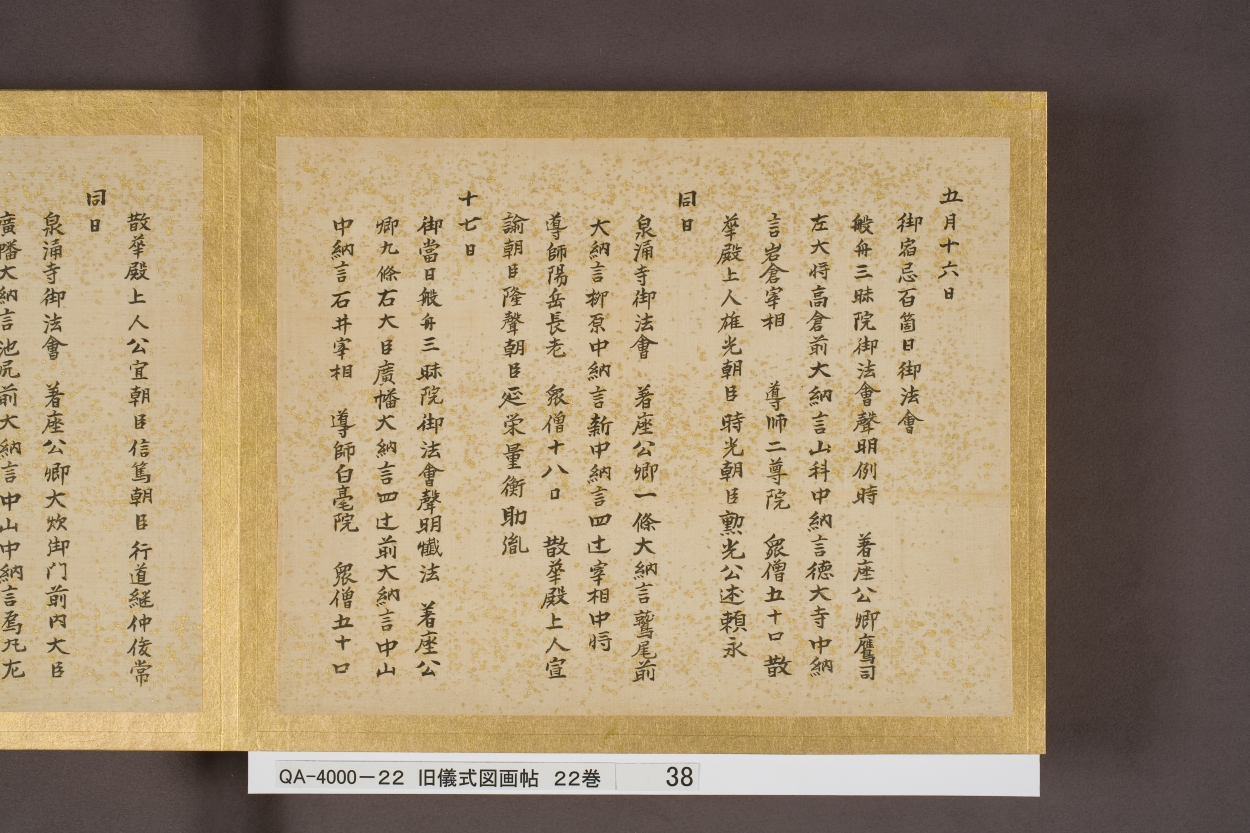 五月十六日
御宿忌百箇日御法會
般舟三昧院御法會聲明例時　著座公卿鷹司
左大将高倉前大納言山科中納言徳大寺中納
言岩倉宰相　導師二尊院　衆僧五十口　散
華殿上人雄光朝臣時光朝臣勲光公述頼永
同日
泉涌寺御法會　著座公卿一條大納言鷲尾前
大納言柳原中納言新中納言四辻宰相中将
導師陽岳長老　衆僧十八口　散華殿上人宣
諭朝臣隆聲朝臣延栄量衡助胤
十七日
御當日般舟三昧院御法會聲明懺法　著座公
卿九條右大臣廣幡大納言四辻前大納言中山
中納言石井宰相　導師白毫院　衆僧五十口
散華殿上人公宜朝臣信篤朝臣行道継仲俊常
同日
泉涌寺御法會　著座公卿大炊御門前内大臣
廣幡大納言池尻前大納言中山中納言
QA-4000－22　旧儀式図画帖　22巻　38